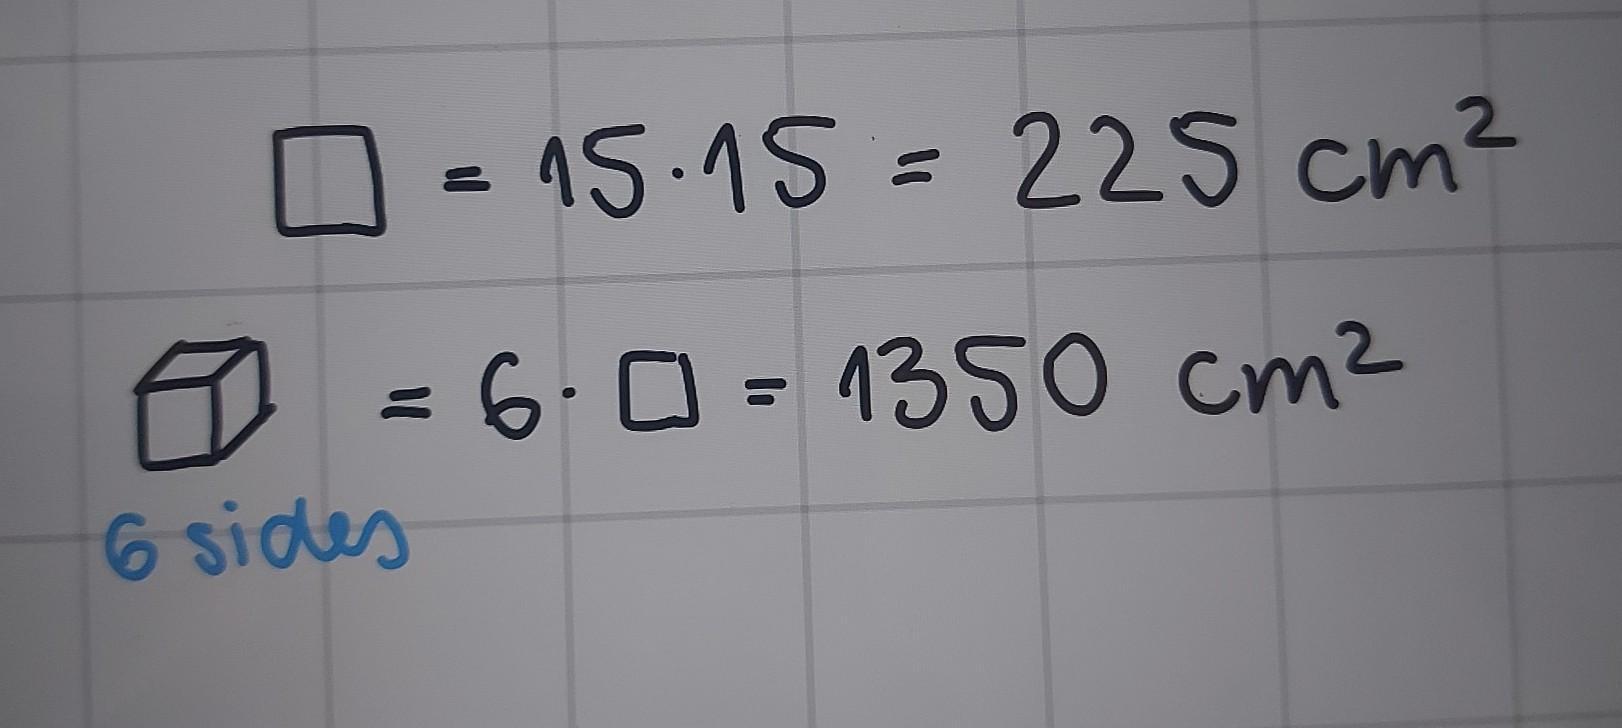 □ = 15·15 = 225 cm²
= 6·□ = 1350 cm²
6 sides